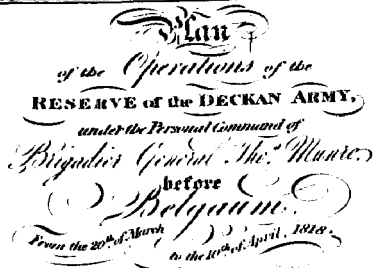 Plan
of the Operations of the
RESERVE of the DECKAN ARMY,
under the Personal Command of
Brigadier General Thos. Munro.
before
Belgaum.
From the 20th. of March
to the 10th of April, 1818.